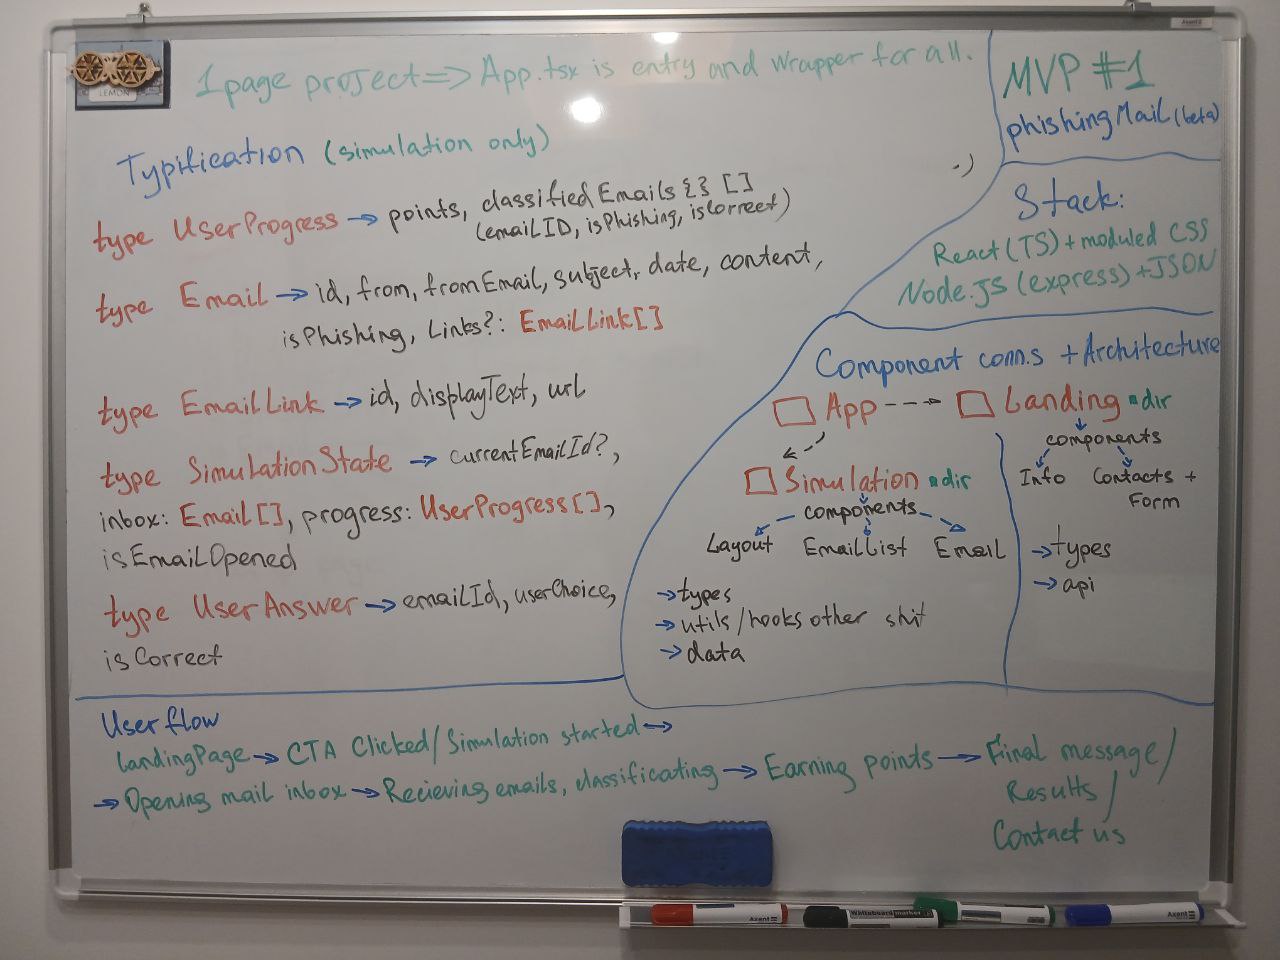 1 page project => App.tsx is entry and wrapper for all.
LEMON
Typification (simulation only)
type UserProgress → points, classifiedEmails {} []
(emailID, isPhishing, isCorrect)
type Email → id, from, fromEmail, subject, date, content,
isPhishing, Links?: EmailLink[]
type EmailLink → id, displayText, url
type SimulationState → currentEmailId?,
inbox: Email[], progress: UserProgress[],
isEmailOpened
type UserAnswer → emailId, userChoice,
isCorrect
MVP #1
phishingMail (beta)
Stack:
React (TS) + moduled CSS
Node.JS (express) + JSON
Component conn.s + Architecture
App → Landing dir
components
Info Contacts +
Form
→ types
→ api
Simulation dir
components
Layout EmailList Email
→ types
→ utils/hooks other shit
→ data
User flow
LandingPage → CTA Clicked/Simulation started →
→ Opening mail inbox → Recieving emails, classificating → Earning points → Final message/
Results/
Contact us
Axent
Whiteboard marker
Axent